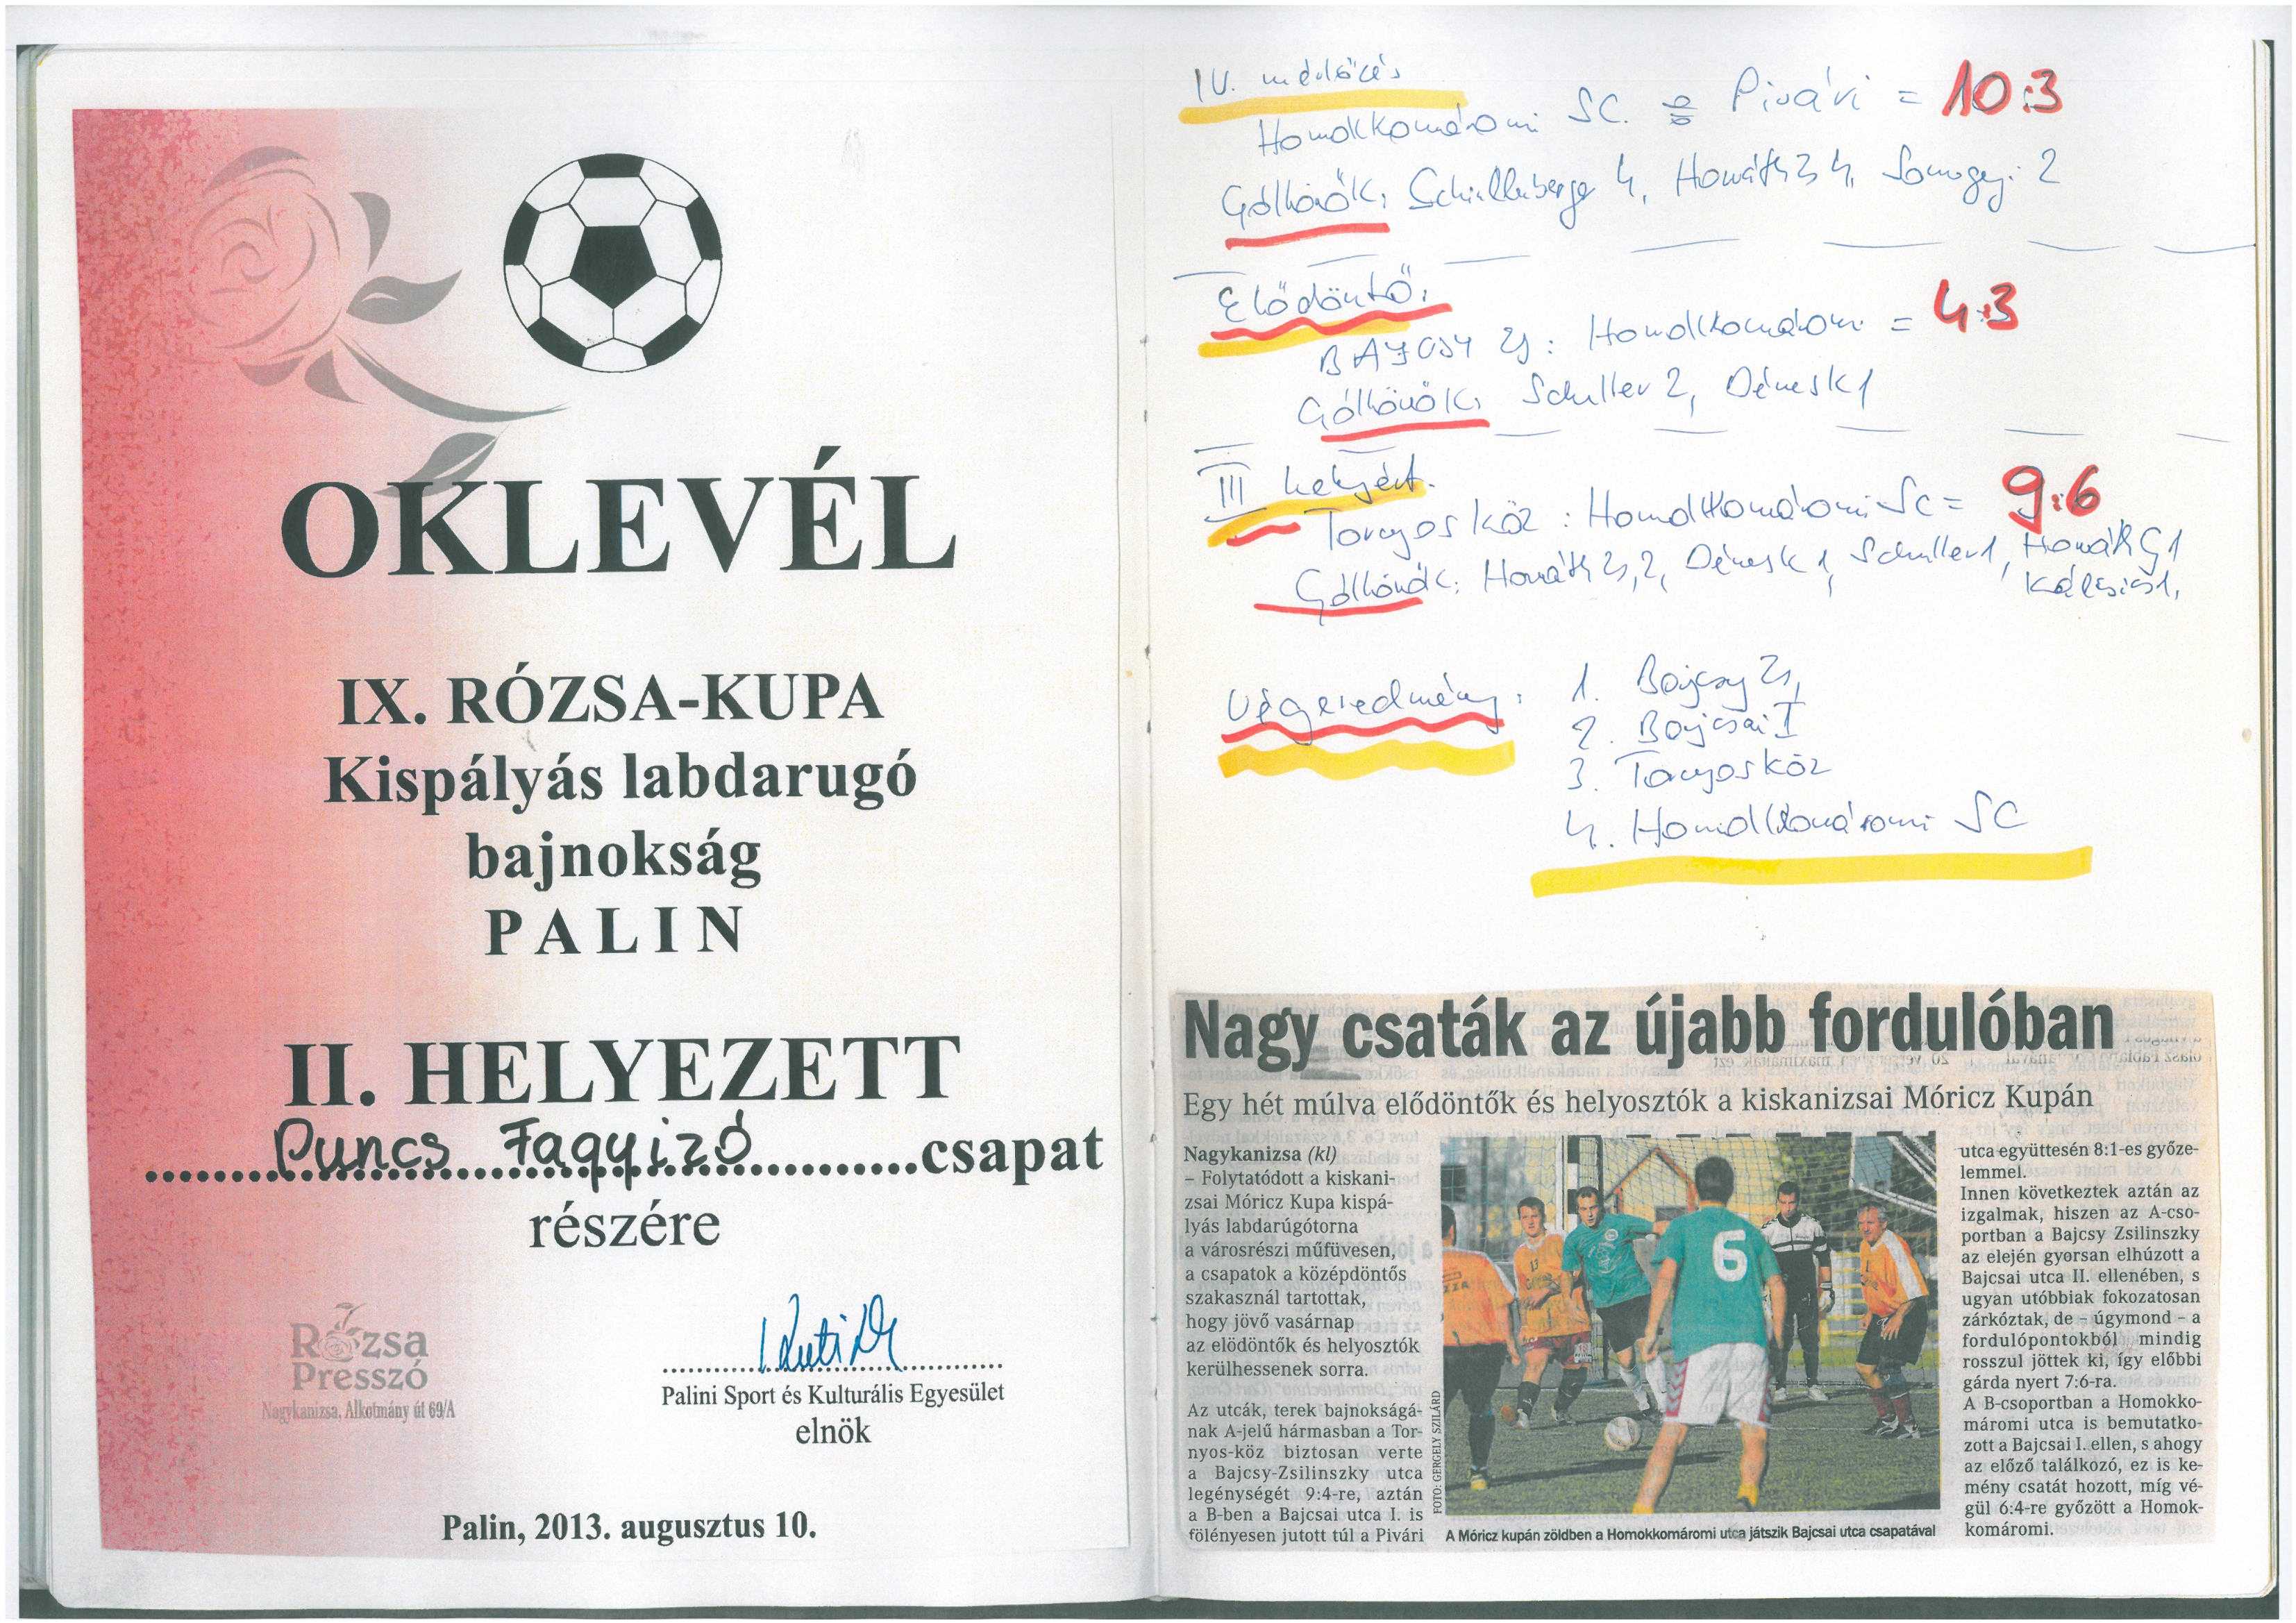 OKLEVÉL
IX. RÓZSA-KUPA
Kispályás labdarugó
bajnokság
PALIN
II. HELYEZETT
Puncs Fagyizó csapat
részére
Rózsa
Presszó
Nagykanizsa, Alkotmány út 69/A
Palini Sport és Kulturális Egyesület
elnök
Palin, 2013. augusztus 10.
IV. mérkőzés
Homokkomáromi SC. : Pivári = 10:3
Góllövők: 4, Horváth Zs 4, Somogyi 2
Elődöntő:
BAJCSY Zs : Homokkomáromi = 4:3
Góllövők: Schuller 2, Dénes K 1
III helyért.
Tornyos köz : Homokkomáromi SC = 9:6
Góllövők: Horváth Zs 2, Dénes K 1, Schuller 1, Horváth G 1
Végeredmény:
1. Bajcsy Zs,
2. Bajcsai I
3. Tornyos köz
4. Homokkomáromi SC
Nagy csaták az újabb fordulóban
Egy hét múlva elődöntők és helyosztók a kiskanizsai Móricz Kupán
Nagykanizsa (kl)
– Folytatódott a kiskani-
zsai Móricz Kupa kispá-
lyás labdarúgótorna
a városrészi műfüvesen,
a csapatok a középdöntős
szakasznál tartottak,
hogy jövő vasárnap
az elődöntők és helyosztók
kerülhessenek sorra.
Az utcák, terek bajnokságá-
nak A-jelű hármasban a Tor-
nyos-köz biztosan verte
a Bajcsy-Zsilinszky utca
legénységét 9:4-re, aztán
a B-ben a Bajcsai utca I. is
fölényesen jutott túl a Pivári
6
FOTÓ: GERGELY SZILÁRD
A Móricz kupán zöldben a Homokkomáromi utca játszik Bajcsai utca csapatával
utca együttesén 8:1-es győze-
lemmel.
Innen következtek aztán az
izgalmak, hiszen az A-cso-
portban a Bajcsy Zsilinszky
az elején gyorsan elhúzott a
Bajcsai utca II. ellenében, s
ugyan utóbbiak fokozatosan
zárkóztak, de – úgymond – a
fordulópontokból mindig
rosszul jöttek ki, így előbbi
gárda nyert 7:6-ra.
A B-csoportban a Homokko-
máromi utca is bemutatko-
zott a Bajcsai I. ellen, s ahogy
az előző találkozó, ez is ke-
mény csatát hozott, míg vé-
gül 6:4-re győzött a Homok-
komáromi.